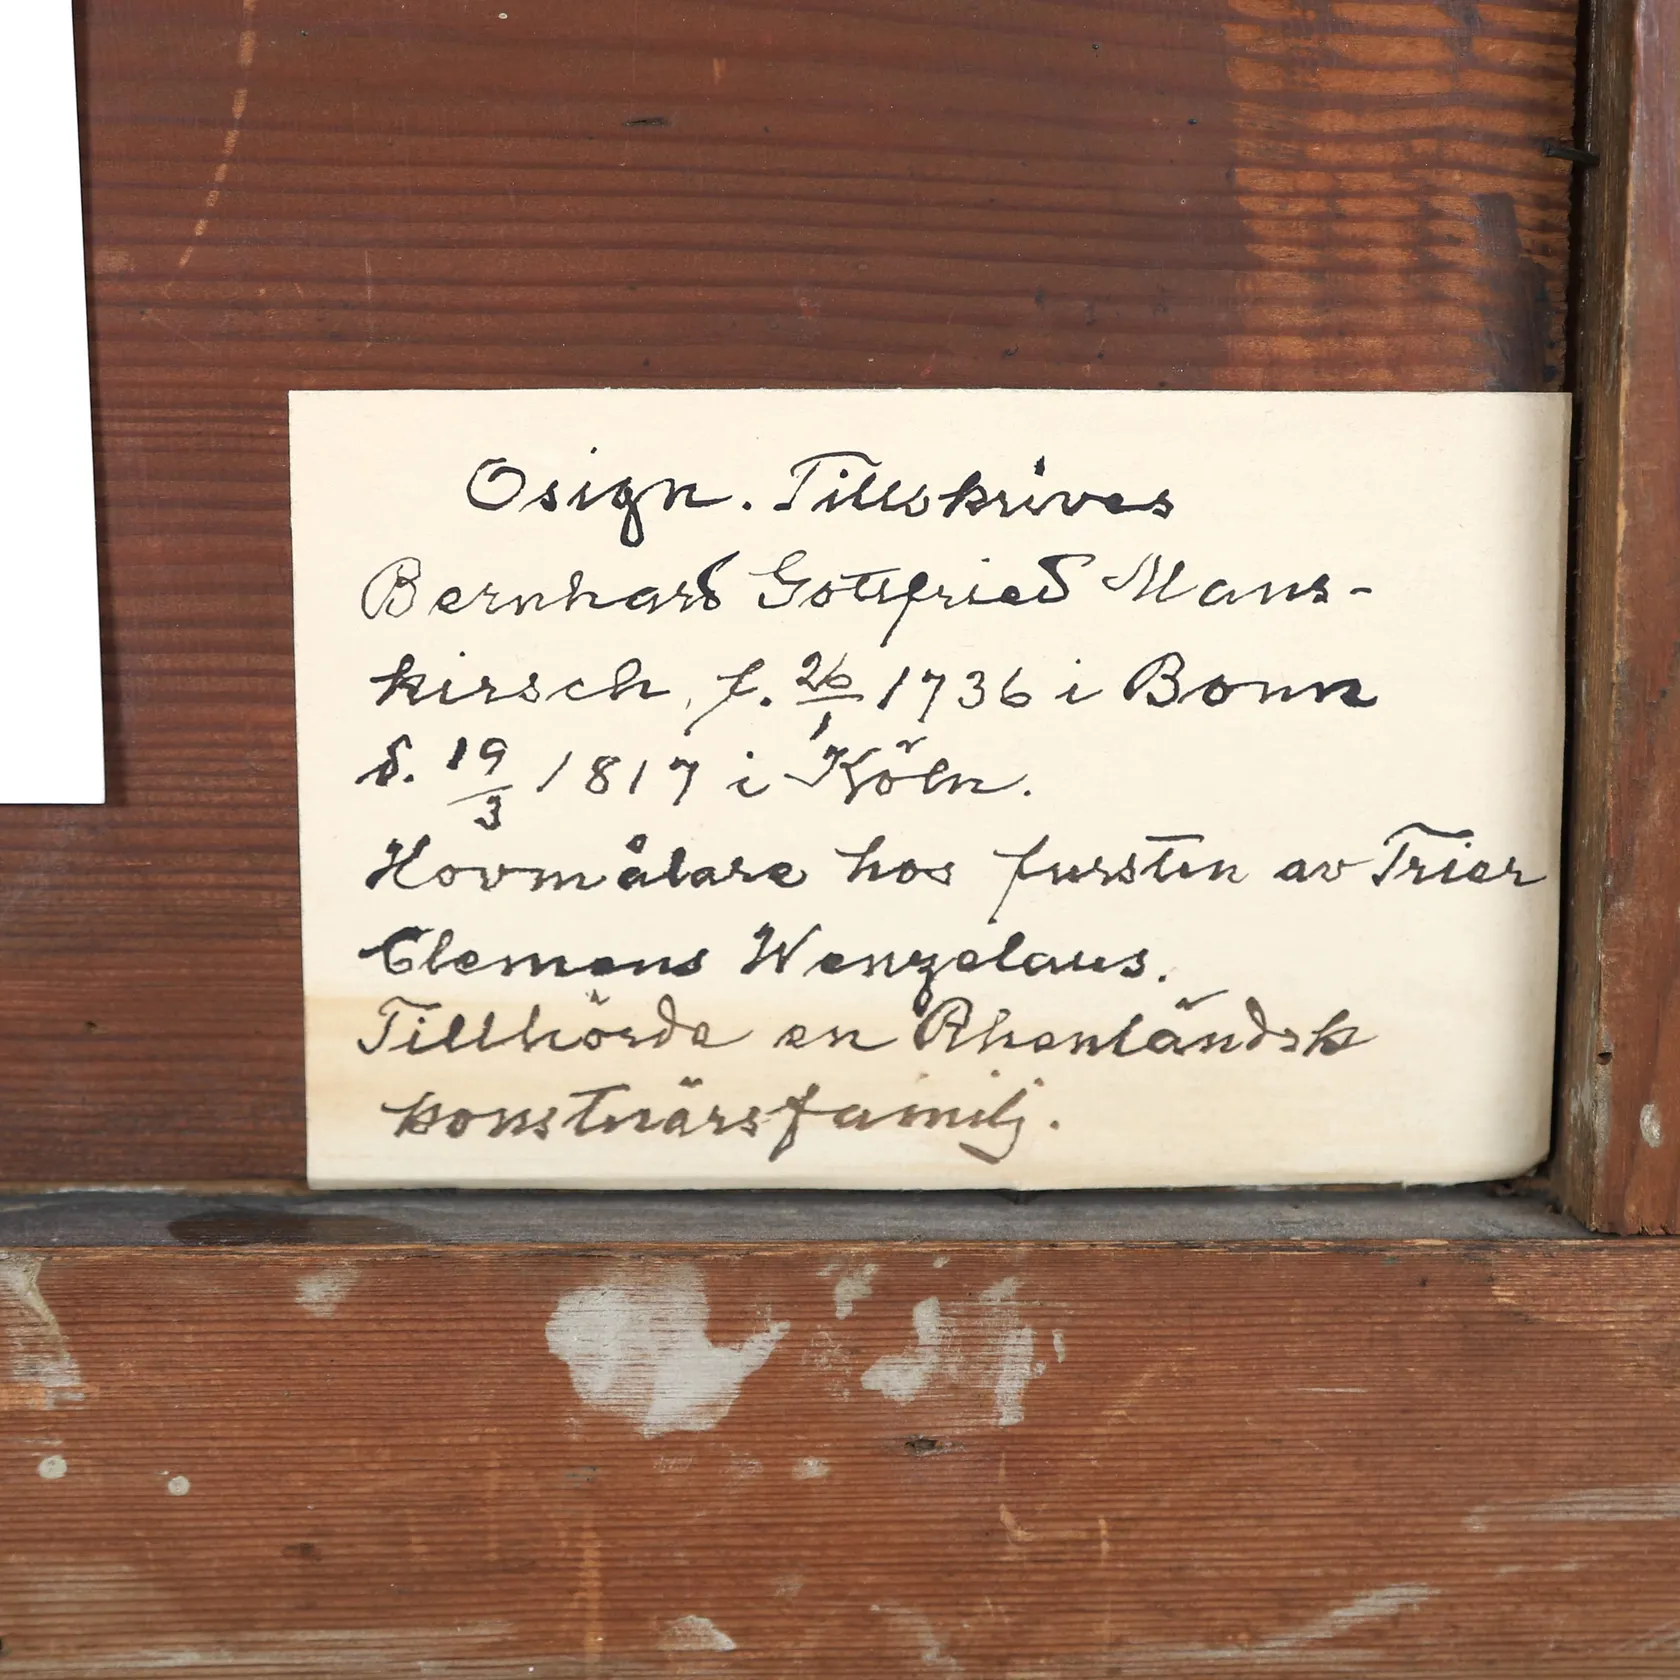 Osign. Tillskrives
Bernhard Gottfried Mans-
kirsch, f. 26/1 1736 i Bonn
d. 19/3 1817 i Köln.
Hovmålare hos fursten av Trier
Clemens Wenzelaus.
Tillhörde en Rhenländsk
konstnärsfamilj.